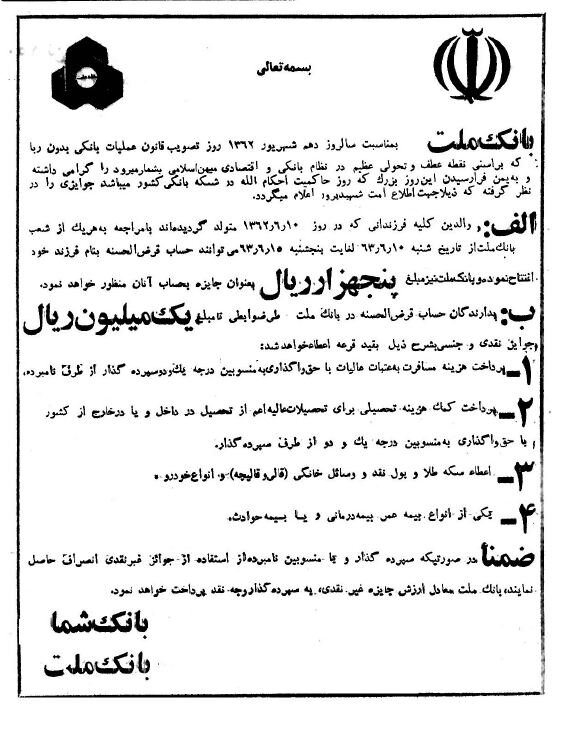 بسمه تعالی
بانک ملت بمناسبت سالروز دهم شهریور ۱۳۶۲ روز تصویب قانون عملیات بانکی بدون ربا
که براستی نقطه عطف و تحولی عظیم در نظام بانکی و اقتصادی میهن اسلامی بشمار میرود را گرامی داشته
و به یمن فرارسیدن این روز بزرگ که روز حاکمیت احکام الله در شبکه بانکی کشور میباشد جوایزی را در
نظر گرفته که ذیلا جهت اطلاع امت شهیدپرور اعلام میگردد.
الف: والدین کلیه فرزندانی که در روز ۱۳۶۲٫۶٫۱۰ متولد گردیده‌اند بامراجعه به‌هریک از شعب
بانک ملت از تاریخ شنبه ۶۳٫۶٫۱۰ لغایت پنجشنبه ۶۳٫۶٫۱۵ می توانند حساب قرض الحسنه بنام فرزند خود
افتتاح نموده و بانک ملت نیز مبلغ پنجهزار ریال بعنوان جایزه بحساب آنان منظور خواهد نمود.
ب: بدارندگان حساب قرض الحسنه در بانک ملت طی ضوابطی تا مبلغ یک میلیون ریال
جوایز نقدی و جنسی بشرح ذیل بقید قرعه اعطاء خواهد شد:
۱ـ پرداخت هزینه مسافرت به عتبات عالیات با حق واگذاری به منسوبین درجه یک و دو سپرده گذار از طرف نامبرده.
۲ـ پرداخت کمک هزینه تحصیلی برای تحصیلات عالیه اعم از تحصیل در داخل و یا در خارج از کشور
با حق واگذاری به منسوبین درجه یک و دو از طرف سپرده گذار.
۳ـ اعطاء سکه طلا و پول نقد و وسائل خانگی (قالی و قالیچه) و انواع خودرو.
۴ـ یکی از انواع بیمه عمر بیمه درمانی و یا بیمه حوادث.
ضمناً در صورتیکه سپرده گذار و یا منسوبین نامبرده از استفاده از جوائز غیر نقدی انصراف حاصل
نمایند، بانک ملت معادل ارزش جایزه غیر نقدی، به سپرده گذار وجه نقد پرداخت خواهد نمود.
بانک شما
بانک ملت